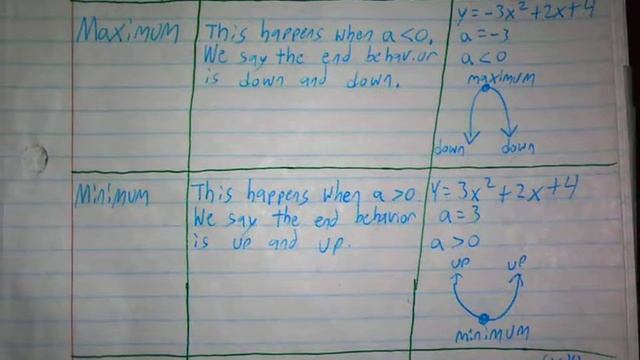 Maximum
This happens when a<0.
We say the end behavior
is down and down.
y=-3x²+2x+4
a=-3
a<0
maximum
down down
Minimum
This happens when a>0
We say the end behavior
is up and up.
y=3x²+2x+4
a=3
a>0
up up
minimum